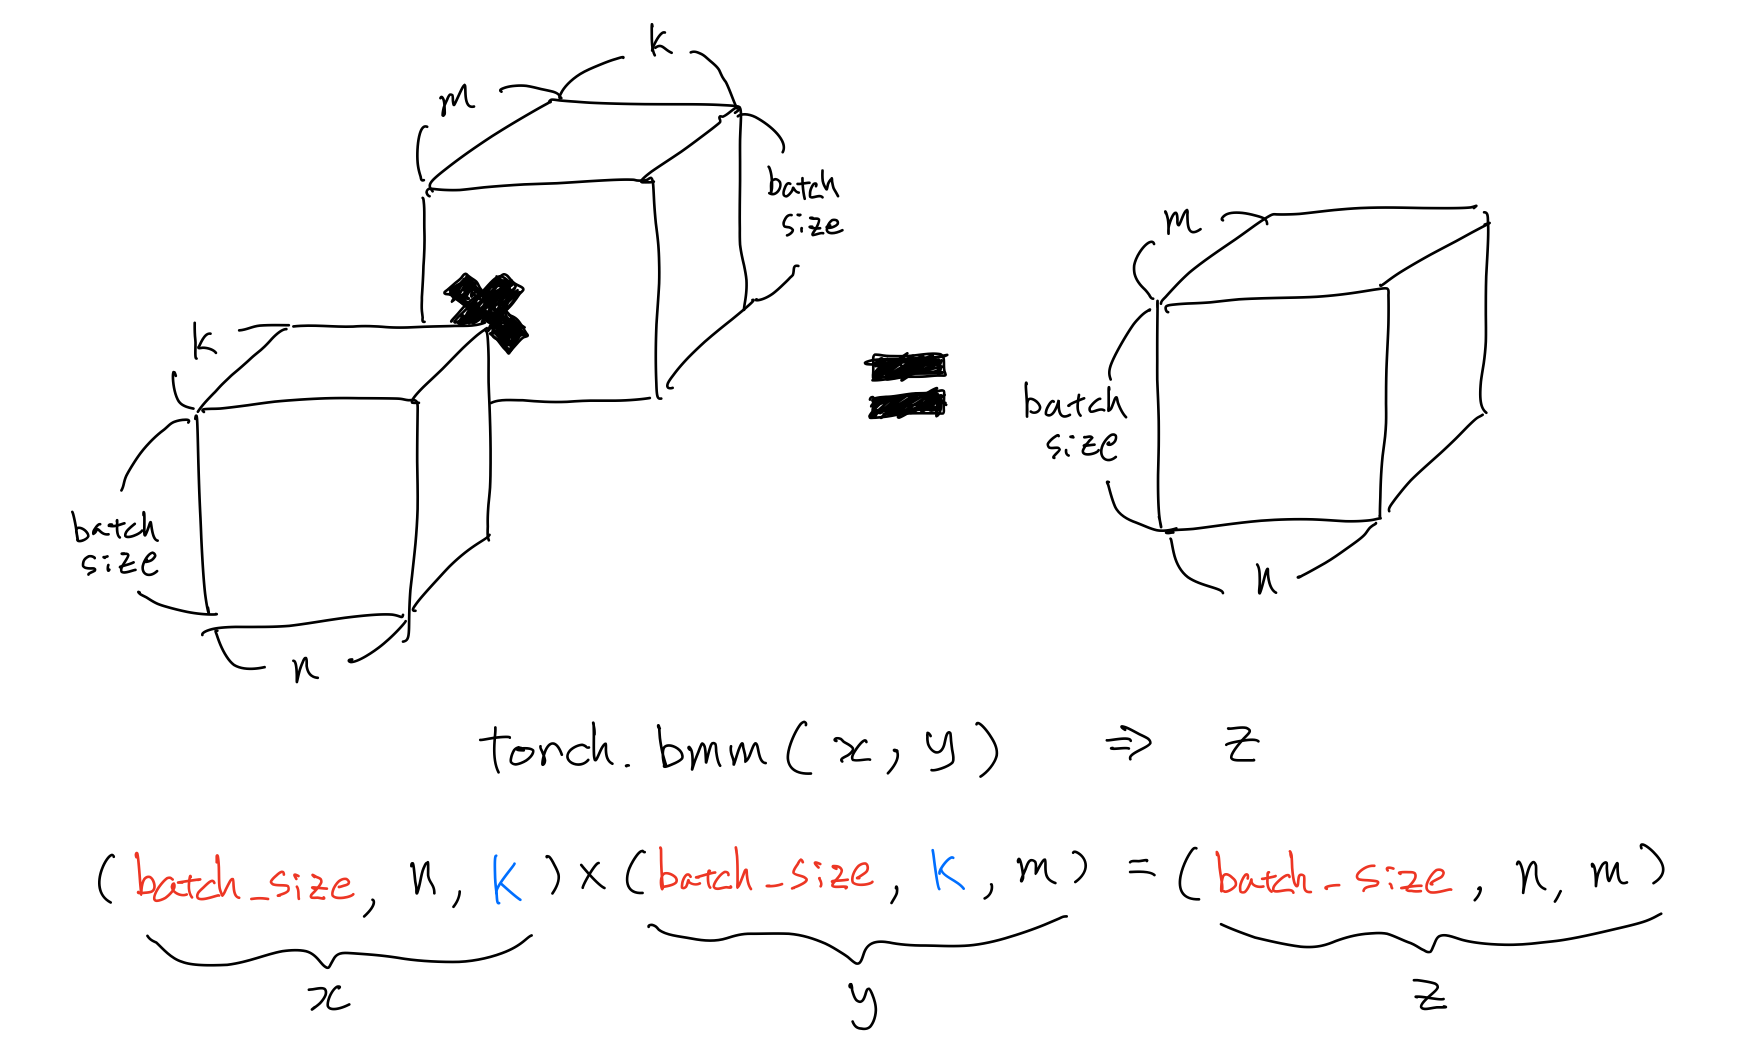 k
m
batch
size
k
batch
size
n
m
batch
size
n
torch.bmm(x, y) ⇒ z
(batch_size, n, k) × (batch_size, k, m) = (batch_size, n, m)
x y z